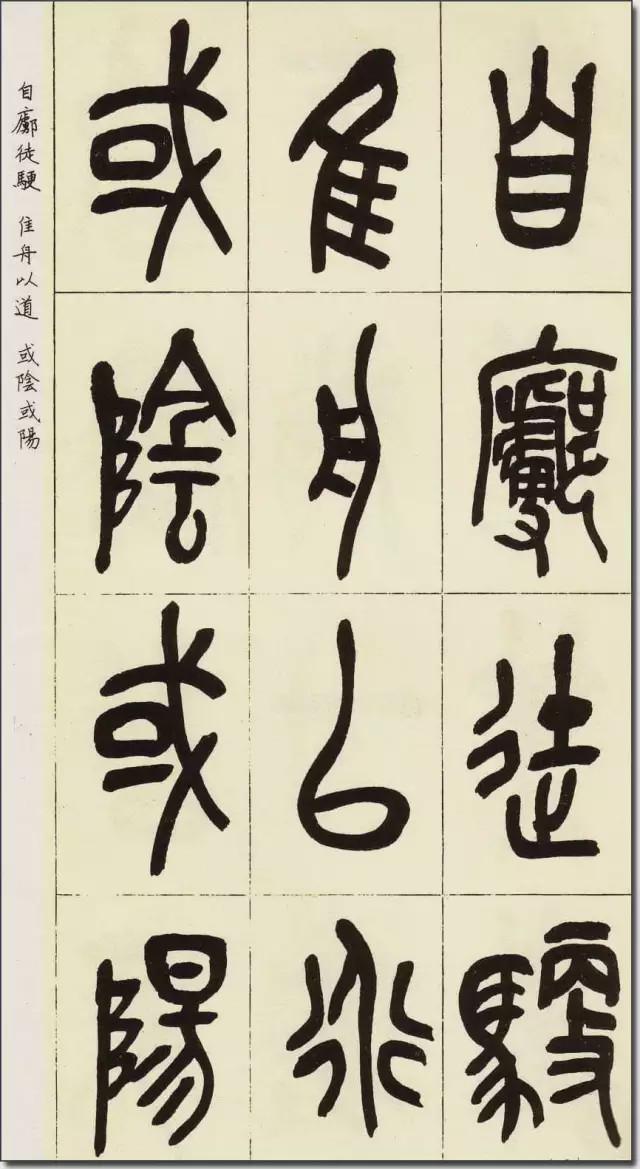 自廓徒
隹舟以道
或陰或陽
自廓徒 隹舟以道 或陰或陽